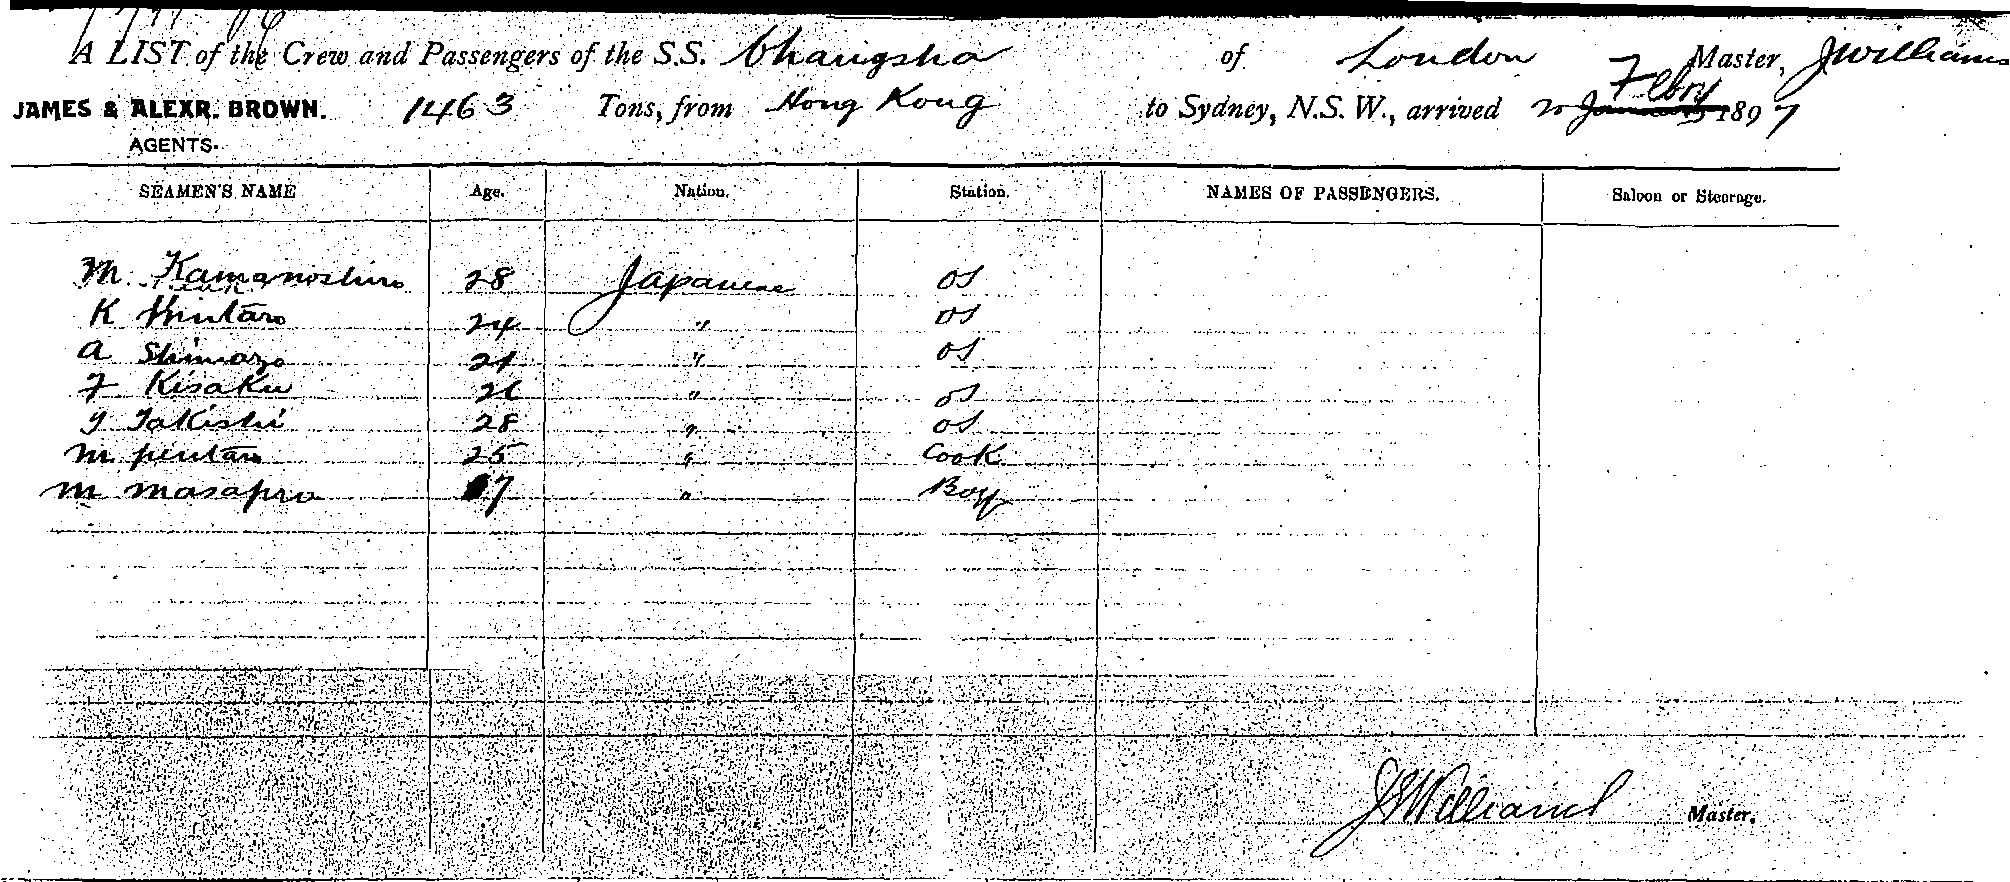 A LIST of the Crew and Passengers of the S.S. Changsha of London Master, J Williams
JAMES & ALEXR. BROWN. 1463 Tons, from Hong Kong to Sydney, N.S.W., arrived 20 Feby 1897
AGENTS.
SEAMEN'S NAME Age. Nation. Station. NAMES OF PASSENGERS. Saloon or Steerage.
M. Kamanoshiro 28 Japanese OS
K Shintaro 24 " OS
A Shimazo 21 " OS
F Kisaku 26 " OS
Y Takishi 28 " OS
M 25 " Cook
M Masapro 17 " Boy
J Williams Master.